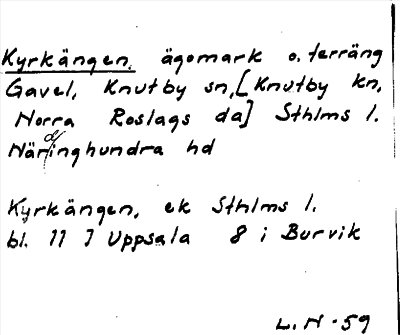 Kyrkängen, ägomark o. terräng
Gavel, Knutby sn, [Knutby kn,
Norra Roslags da] Sthlms l.
Närdinghundra hd
Kyrkängen, ek Sthlms l.
bl. 11 J Uppsala 8 i Burvik
L. N - 59